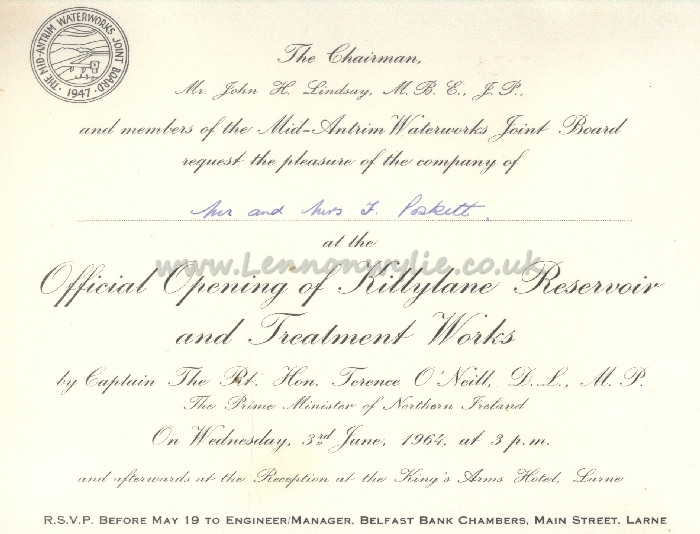 THE MID-ANTRIM WATERWORKS JOINT BOARD
· 1947 ·
The Chairman,
Mr. John H. Lindsay, M.B.E., J.P.,
and members of the Mid-Antrim Waterworks Joint Board
request the pleasure of the company of
Mr and Mrs F. Poskett.
at the
www.Lennonwylie.co.uk
Official Opening of Killylane Reservoir
and Treatment Works
by Captain The Rt. Hon. Terence O'Neill, D.L., M.P.
The Prime Minister of Northern Ireland
On Wednesday, 3rd June, 1964, at 3 p.m.
and afterwards at the Reception at the King's Arms Hotel, Larne
R.S.V.P. BEFORE MAY 19 TO ENGINEER/MANAGER, BELFAST BANK CHAMBERS, MAIN STREET, LARNE